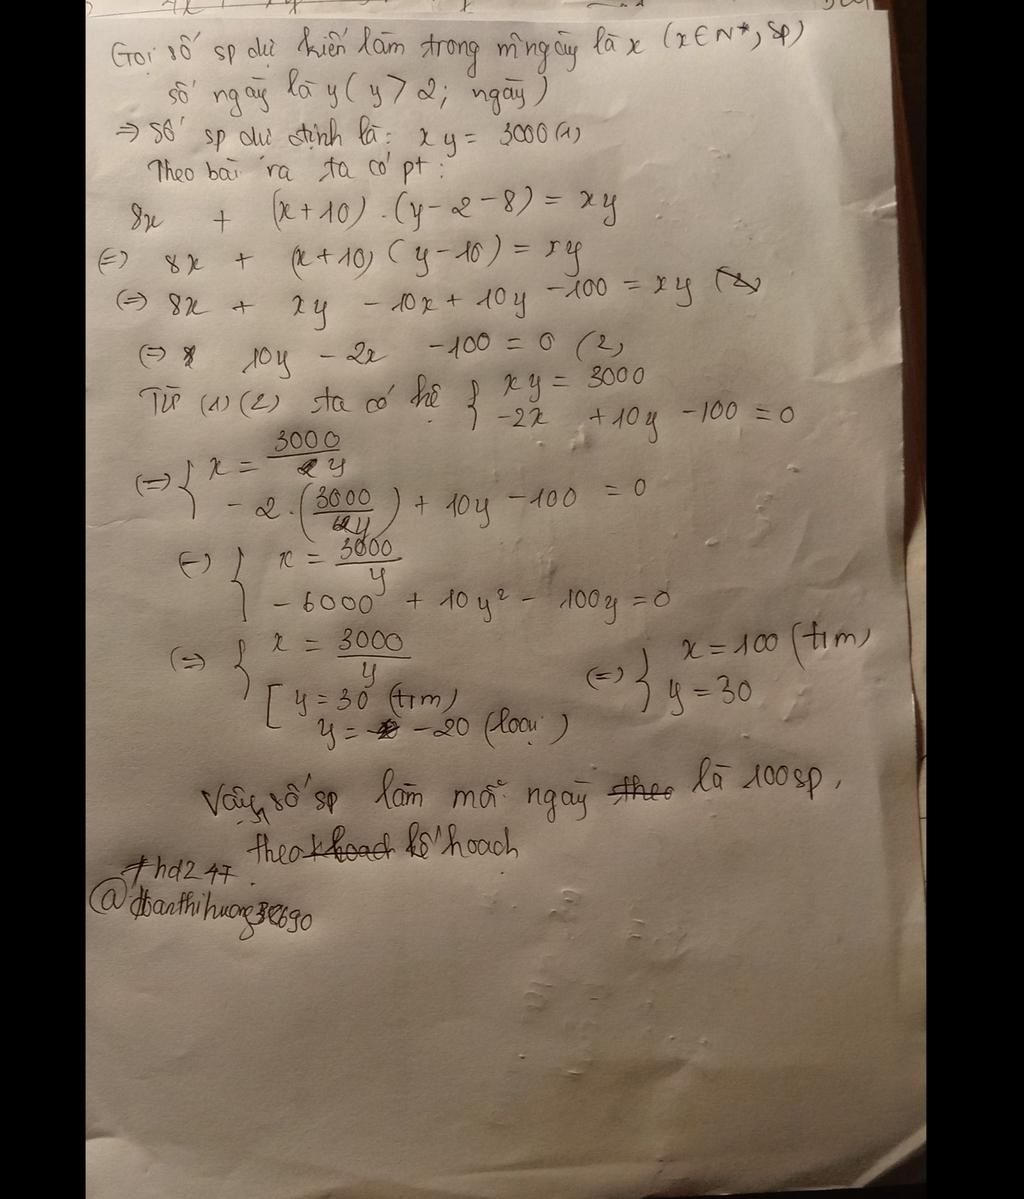 Gọi số sp dự kiến làm trong mỗi ngày là x (x∈N*, sp)
số ngày là y (y > 2; ngày)
=> số sp dự định là: xy = 3000 (1)
Theo bài ra ta có pt:
8x + (x+10).(y-2-8) = xy
(=) 8x + (x+10)(y-10) = xy
(=) 8x + xy - 10x + 10y - 100 = xy
(=) 10y - 2x - 100 = 0 (2)
Từ (1) (2) ta có hệ { xy = 3000
-2x + 10y - 100 = 0
(=) { x = 3000/y
-2.(3000/y) + 10y - 100 = 0
(=) { x = 3000/y
-6000 + 10y² - 100y = 0
(=) { x = 3000/y
[ y = 30 (t/m)
y = -20 (loại)
(=) { x = 100 (t/m)
y = 30
Vậy số sp làm mỗi ngày là 100 sp.
theo kế hoạch
thd247